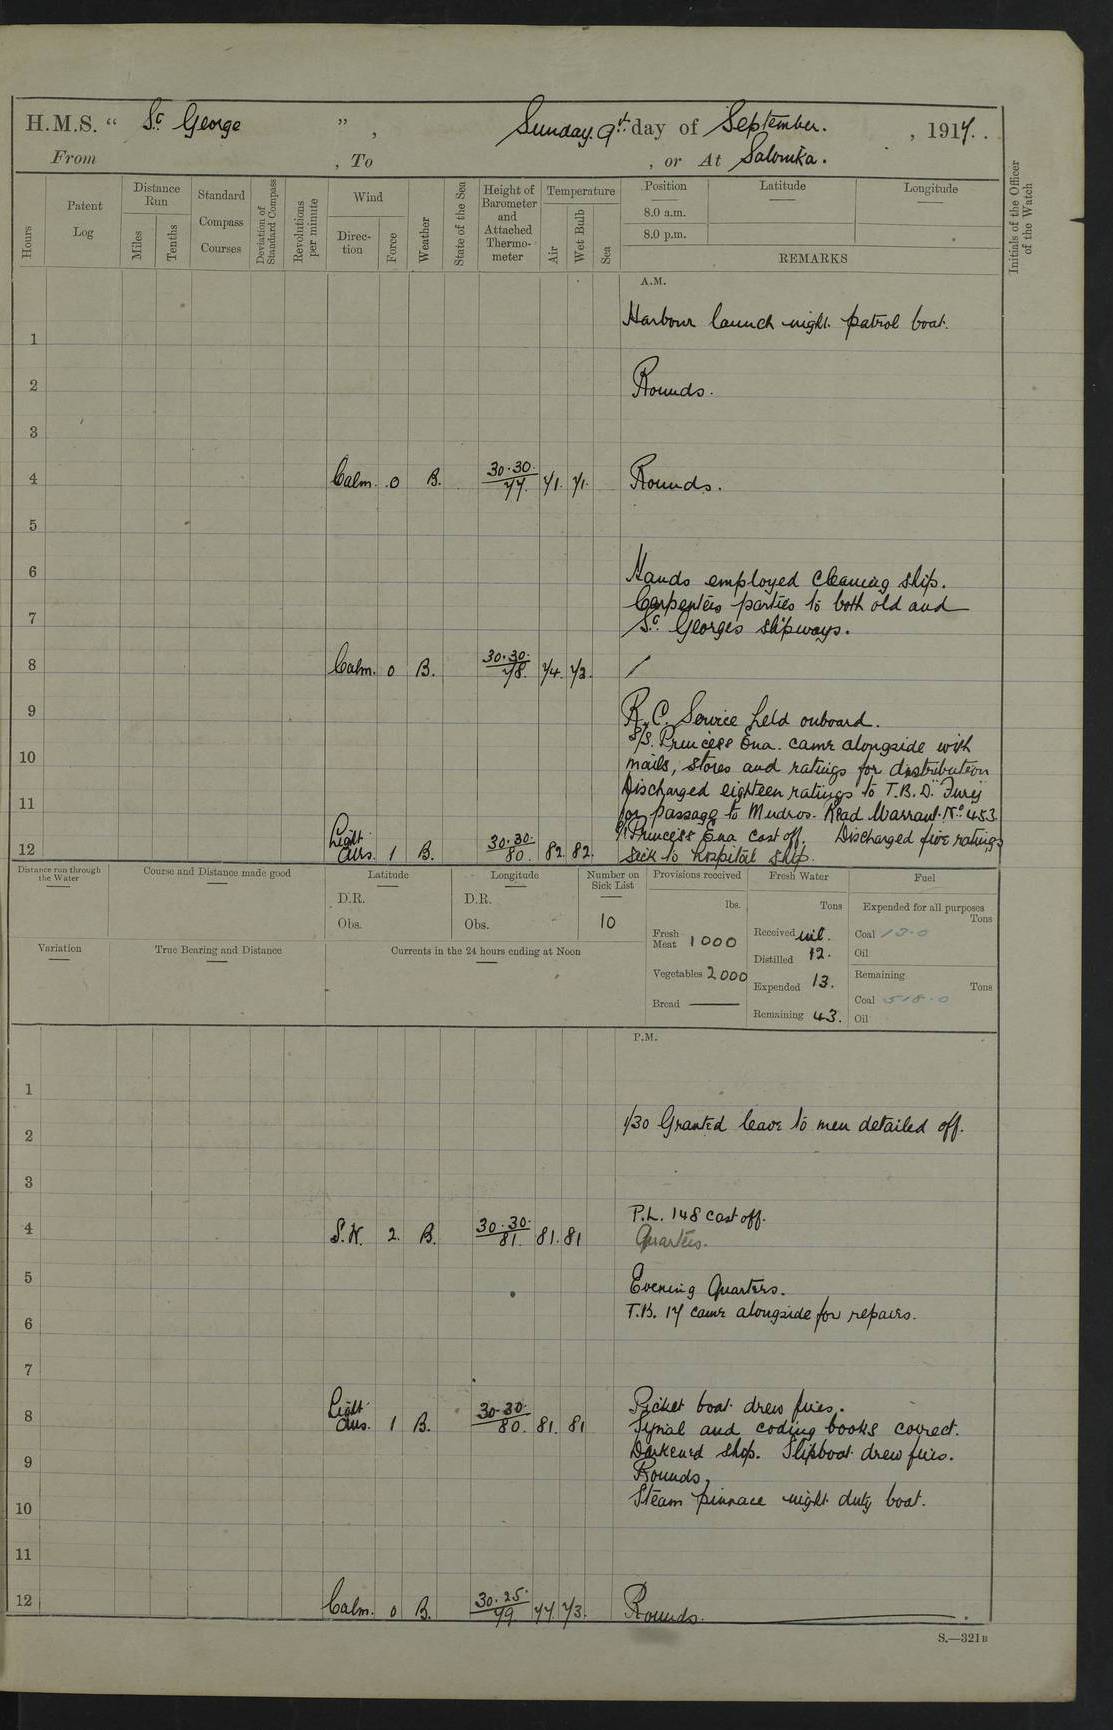 H.M.S. " St George " , Sunday. 9th. day of September. , 1917. .
From , To , or At Salonika.
Hours
Patent Log
Distance Run
Miles
Tenths
Standard Compass Courses
Deviation of Standard Compass
Revolutions per minute
Wind
Direction
Force
Weather
State of the Sea
Height of Barometer and Attached Thermometer
Temperature
Air
Wet Bulb
Sea
Position
8.0 a.m.
8.0 p.m.
Latitude
Longitude
REMARKS
Initials of the Officer of the Watch
A.M.
Harbour launch night patrol boat.
1
2 Rounds.
3
4 Calm. 0 B. 30.30. 77. 71. 71. Rounds.
5
6 Hands employed cleaning ship.
Carpenters parties to both old and
7 St. Georges slipways.
8 Calm. 0 B. 30.30. 78. 74. 72.
9 R.C. Service held onboard.
S/S. Princess Ena. came alongside with
10 mails, stores and ratings for distribution
Discharged eighteen ratings to T.B.D. "Fury"
11 for passage to Mudros. Read Warrant. No. 453
S/S Princess Ena cast off. Discharged five ratings
12 Light airs. 1 B. 30.30. 80. 82. 82. sick to hospital ship.
Distance run through the Water
Course and Distance made good
Latitude
D.R.
Obs.
Longitude
D.R.
Obs.
Number on Sick List
10
Provisions received
lbs.
Fresh Meat 1000
Vegetables 2000
Bread
Fresh Water
Tons
Received nil.
Distilled 12.
Expended 13.
Remaining 43.
Fuel
Expended for all purposes
Tons
Coal 12.0
Oil
Remaining
Tons
Coal 518.0
Oil
Variation
True Bearing and Distance
Currents in the 24 hours ending at Noon
P.M.
1
2 1/30 Granted leave to men detailed off.
3
P.L. 148 cast off.
4 S.W. 2. B. 30.30. 81. 81. 81 Quarters.
5 Evening Quarters.
T.B. 17 came alongside for repairs.
6
7
Picket boat drew fires.
8 Light airs. 1 B. 30.30. 80. 81. 81 Signal and coding books correct.
Darkened ship. Slipboat drew fires.
9 Rounds,
Steam pinnace night duty boat.
10
11
12 Calm. 0 B. 30.25. 79 77. 73. Rounds.
S.—321B